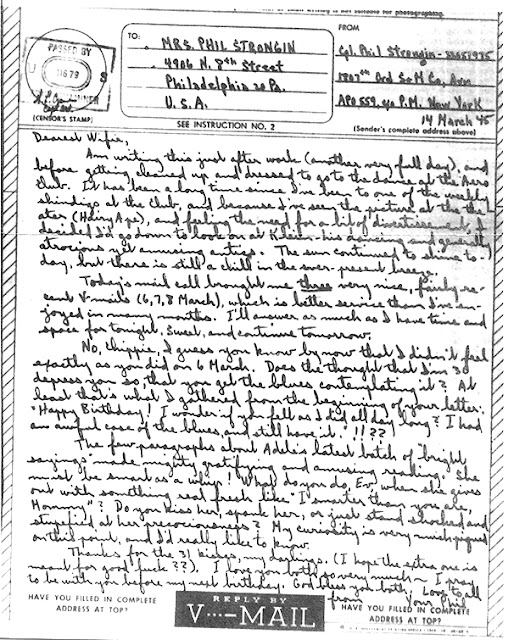 PASSED BY
U S
ARMY EXAMINER
(CENSOR'S STAMP)
TO:
MRS. PHIL STRONGIN
4906 N. 8th Street
Philadelphia 20 Pa.
U.S.A.
SEE INSTRUCTION NO. 2
FROM
Cpl. Phil Strongin
1807th Ord S & M Co. Avn
APO 559, c/o P.M. New York
14 March 45
(Sender's complete address above)
Dearest Wifie,
Am writing this just after work (another very full day), and
before getting cleaned up and dressed to go to the dance at the Aero
Club. It has been a long time since I've been to one of the weekly
shindigs at the Club, and because I've seen the picture at the the-
ater (Hairy Ape), and feeling the need for a bit of divertissement, I
decided I'd go down to look on at Klein - his dancing and generally
atrocious yet amusing antics. The sun continued to shine to-
day, but there is still a chill in the ever-present breeze.
Today's mail call brought me three very nice, fairly re-
cent V-mails (6,7,8 March), which is better service than I've en-
joyed in many months. I'll answer as much as I have time and
space for tonight, Sweet, and continue tomorrow.
No, Chippie, I guess you know by now that I didn't feel
exactly as you did on 6 March. Does the thought that I'm 30
depress you so that you get the blues contemplating it? At
least that's what I gathered from the beginning of your letter:
"Happy Birthday! I wonder if you fell as I did all day long? I had
an awful case of the blues, and still have it." !!??
The few paragraphs about Adele's latest batch of "bright
sayings" made mighty gratifying and amusing reading. She
must be smart as a whip! What do you do, Ev, when she gives
out with something real fresh like "I smarter than you are,
Mommy"? Do you kiss her, spank her, or just stand shocked and
stupefied at her precociousness? My curiosity is very much piqued
on this point, and I'd really like to know.
Thanks for the 31 kisses, my darlings. (I hope the extra one is
meant for good luck??). I love you both so very much ~ I pray
to be with you before my next birthday. God bless you both. Love to all
from
Your Phil
HAVE YOU FILLED IN COMPLETE
ADDRESS AT TOP?
REPLY BY
V···–MAIL
HAVE YOU FILLED IN COMPLETE
ADDRESS AT TOP?